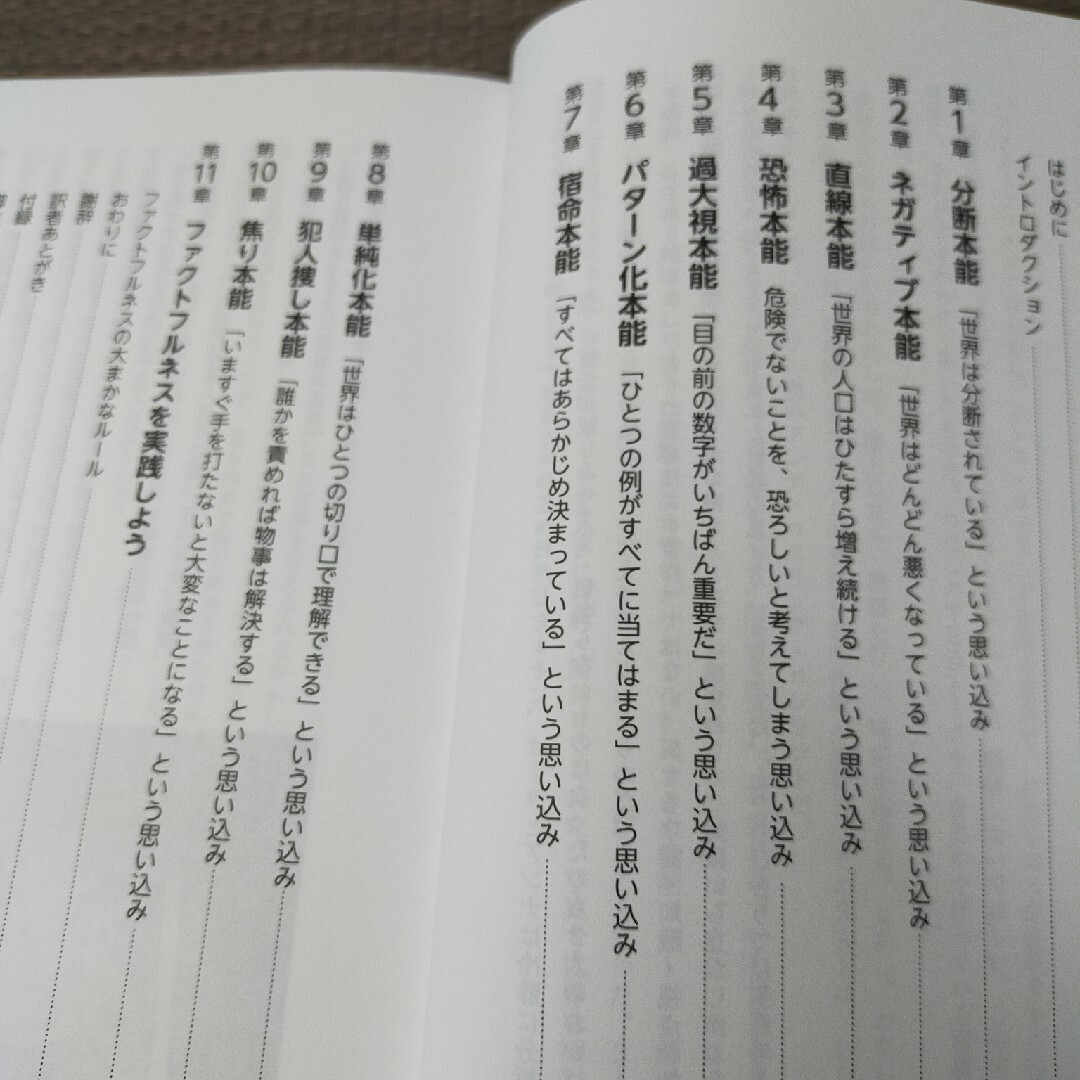 はじめに
イントロダクション
第1章 分断本能 「世界は分断されている」という思い込み
第2章 ネガティブ本能 「世界はどんどん悪くなっている」という思い込み
第3章 直線本能 「世界の人口はひたすら増え続ける」という思い込み
第4章 恐怖本能 危険でないことを、恐ろしいと考えてしまう思い込み
第5章 過大視本能 「目の前の数字がいちばん重要だ」という思い込み
第6章 パターン化本能 「ひとつの例がすべてに当てはまる」という思い込み
第7章 宿命本能 「すべてはあらかじめ決まっている」という思い込み
第8章 単純化本能 「世界はひとつの切り口で理解できる」という思い込み
第9章 犯人捜し本能 「誰かを責めれば物事は解決する」という思い込み
第10章 焦り本能 「いますぐ手を打たないと大変なことになる」という思い込み
第11章 ファクトフルネスを実践しよう
ファクトフルネスの大まかなルール
おわりに
謝辞
訳者あとがき
付録